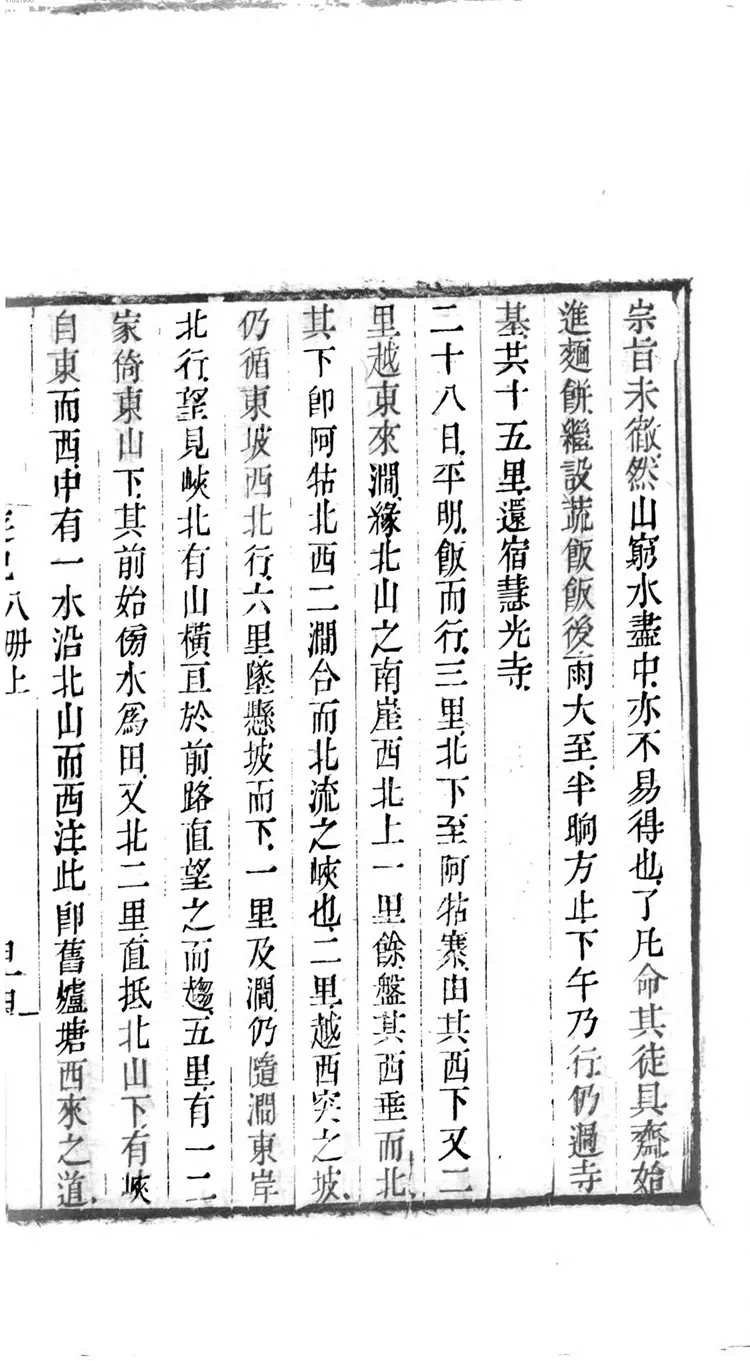 宗旨未徹然山窮水盡中亦不易得也了凡命其徒具齋始
進麵餅繼設蔬飯飯後雨大至半晌方止下午乃行仍過寺
基共十五里還宿慧光寺
二十八日平明飯而行三里北下至阿牯寨由其西下又二
里越東來澗緣北山之南崖西北上一里餘盤其西垂而北
其下卽阿牯北西二澗合而北流之峽也二里越西突之坡
仍循東坡西北行六里墜懸坡而下一里及澗仍隨澗東岸
北行望見峽北有山橫亘於前路直望之而趨五里有一二
家倚東山下其前始傍水爲田又北二里直抵北山下有峽
自東而西中有一水沿北山而西注此卽舊爐塘西來之道
八册上